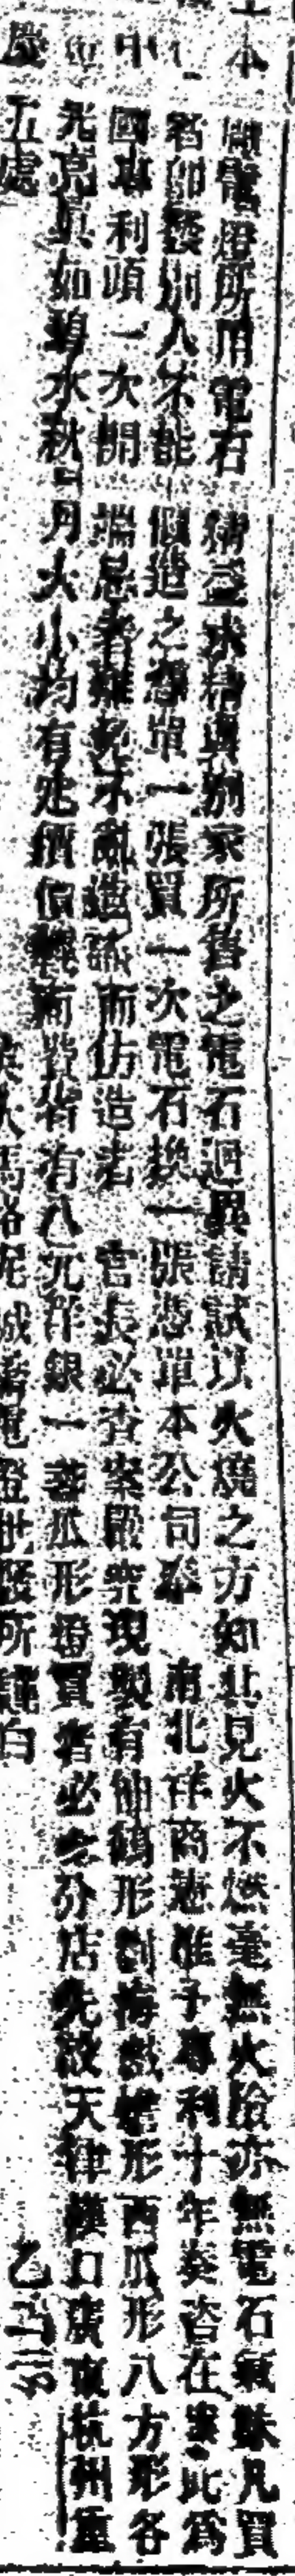 本號電燈所用電石 精益求精與別家所售之電石迥異請試以火燒之方知其見火不燃毫無火險亦無電石氣味凡買
名即發別人不能假造之憑單一張買一次電石換一張憑單本公司奉 南北洋商憲准予專利十年奏咨在案此為
中國專利頭一次開端忌者雖妒不亂造訛而仿造者 官長必查案嚴究現製有仙鶴形 形西瓜形八方形各
光亮真如碧水秋月大小均有定價價輕而 省有八元洋銀一 瓜形 買者必 分店先設天津漢口廣東杭州重
慶五處 馬路泥城橋電燈批發所謹白